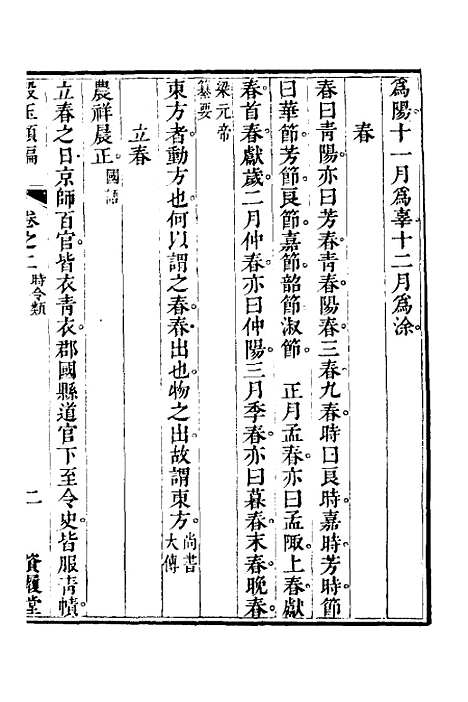 爲陽。十一月爲辜。十二月爲涂。
春
春曰靑陽。亦曰芳春。靑春。陽春。三春。九春。時曰良時。嘉時。芳時。節
曰華節。芳節。良節。嘉節。韶節。淑節。 正月孟春。亦曰孟陬。上春。獻
春。首春。獻歲。二月仲春。亦曰仲陽。三月季春。亦曰暮春。末春。晚春。
梁元帝
纂要
東方者動方也。何以謂之春。春出也。物之出。故謂東方。尚書
大傳
立春
農祥晨正。國語
立春之日。京師百官。皆衣靑衣。郡國縣道官下至令史。皆服靑幘。
類編
卷之二 時令類
二
資履堂